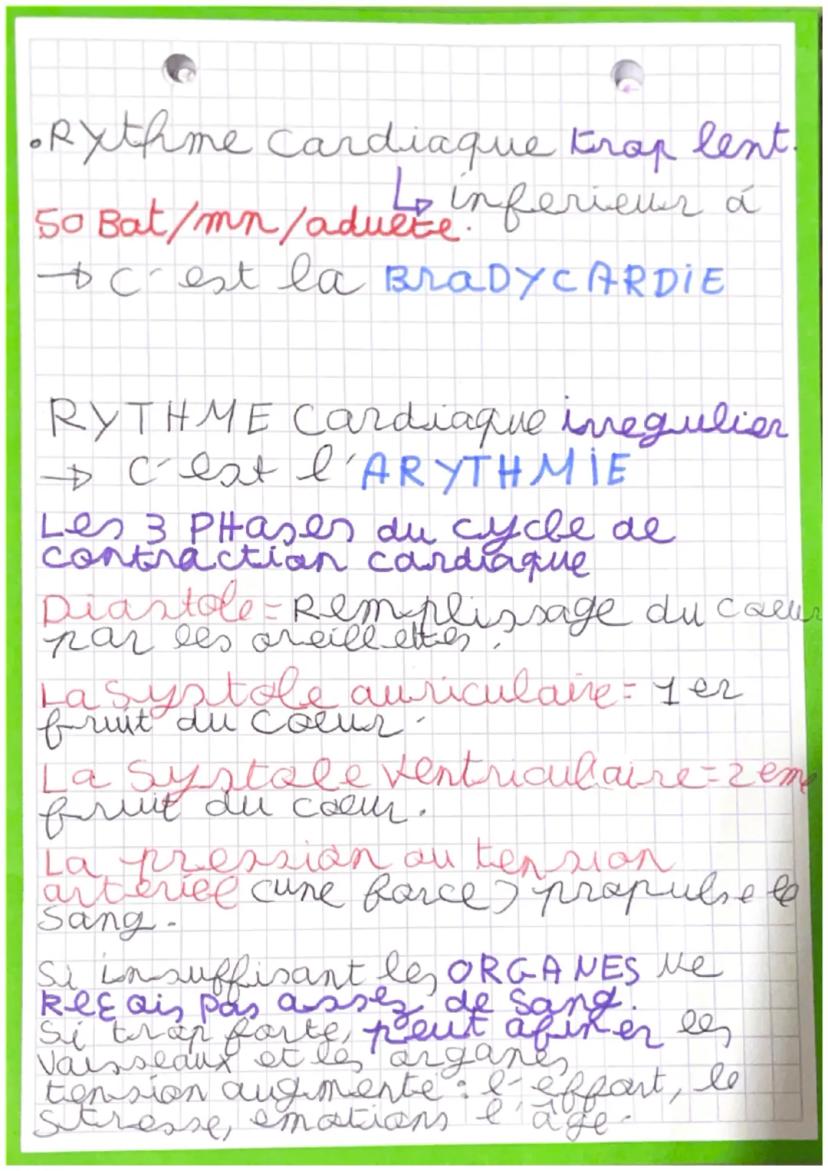 .RYthme cardiaque trop lent.
↳ inferieur á
50 Bat/mn/adulte.
→ c'est la BRaDYCARDIE
RYTHME cardiaque irregulier
→ c'est l'ARYTHMIE
Les 3 PHases du cycle de
contraction cardiaque
Diastole = Remplissage du coeur
par les oreillettes.
La Systole auriculaire = 1er
bruit du coeur.
La Systole ventriculaire = 2eme
bruit du coeur.
La pression ou tension
arteriel (une force) propulse le
sang.
Si insuffisant les ORGANES Ne
Reçois pas assez de sang.
Si trop forte, peut abimer les
vaisseaux et les organes
tension augmente : l'effort, le
stresse, emotions l'âge.